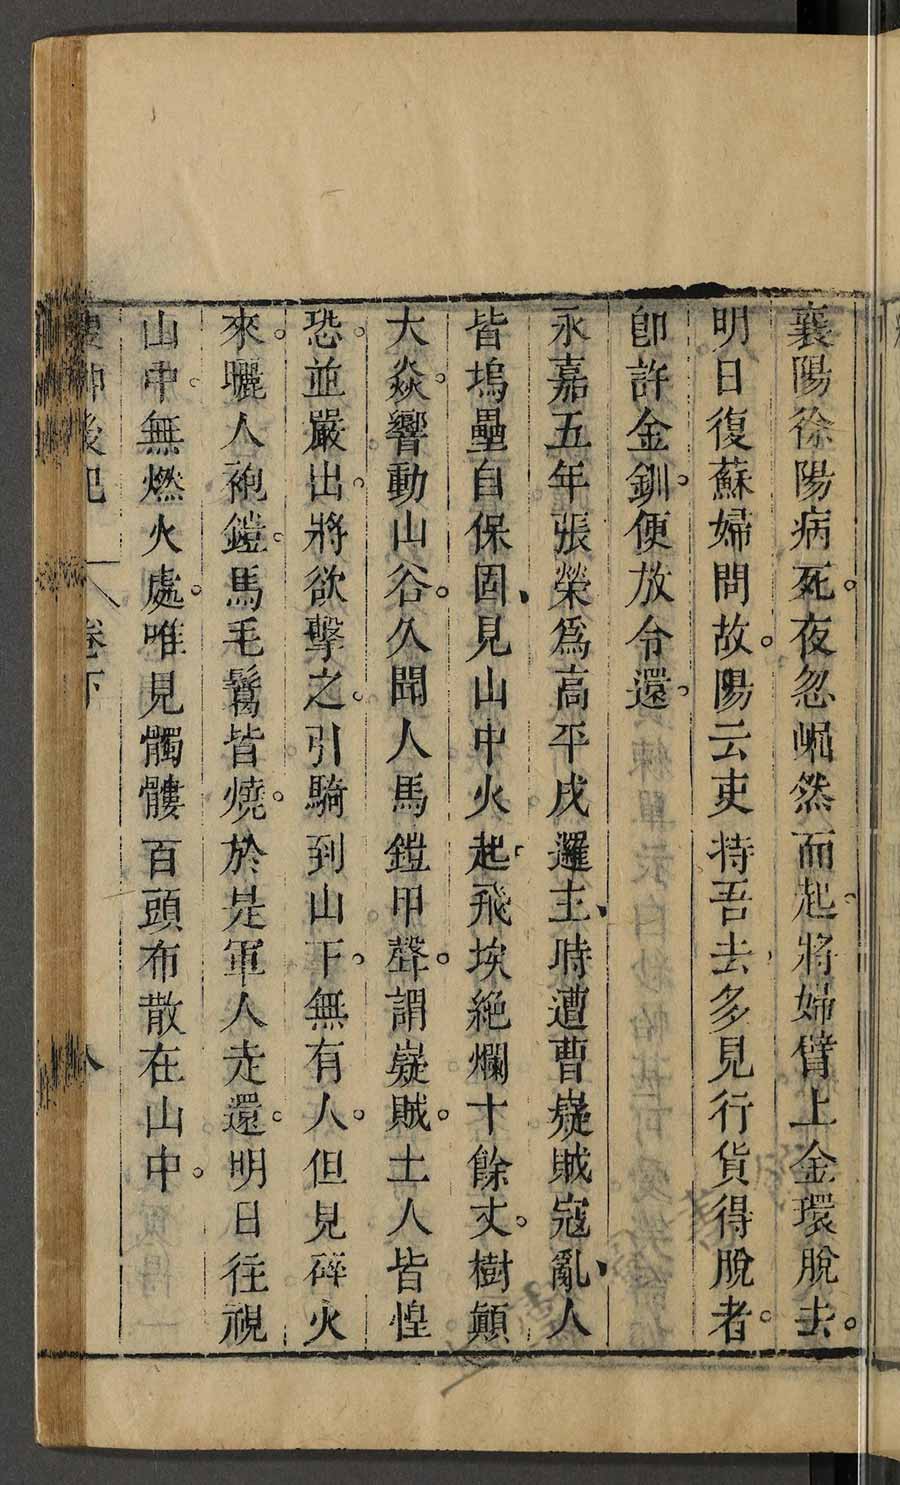 襄陽徐陽病死。夜忽崛然而起。將婦臂上金環脫去。
明日復蘇婦問故。陽云吏持吾去多見行貨得脫者。
卽許金釧。便放令還。
永嘉五年張榮爲高平戍邏主、時遭曹嶷賊寇亂、人
皆塢壘自保固、見山中火起。飛埃絶爛十餘丈。樹顚
大焱。響動山谷。久聞人馬鎧甲聲。謂嶷賊。土人皆惶
恐。並嚴出。將欲擊之。引騎到山下。無有人。但見碎火
來。曬人袍鎧。馬毛鬣皆燒。於是軍人走還。明日往視
山中。無燃火處。唯見髑髏百頭布散在山中。
後記 卷下 八